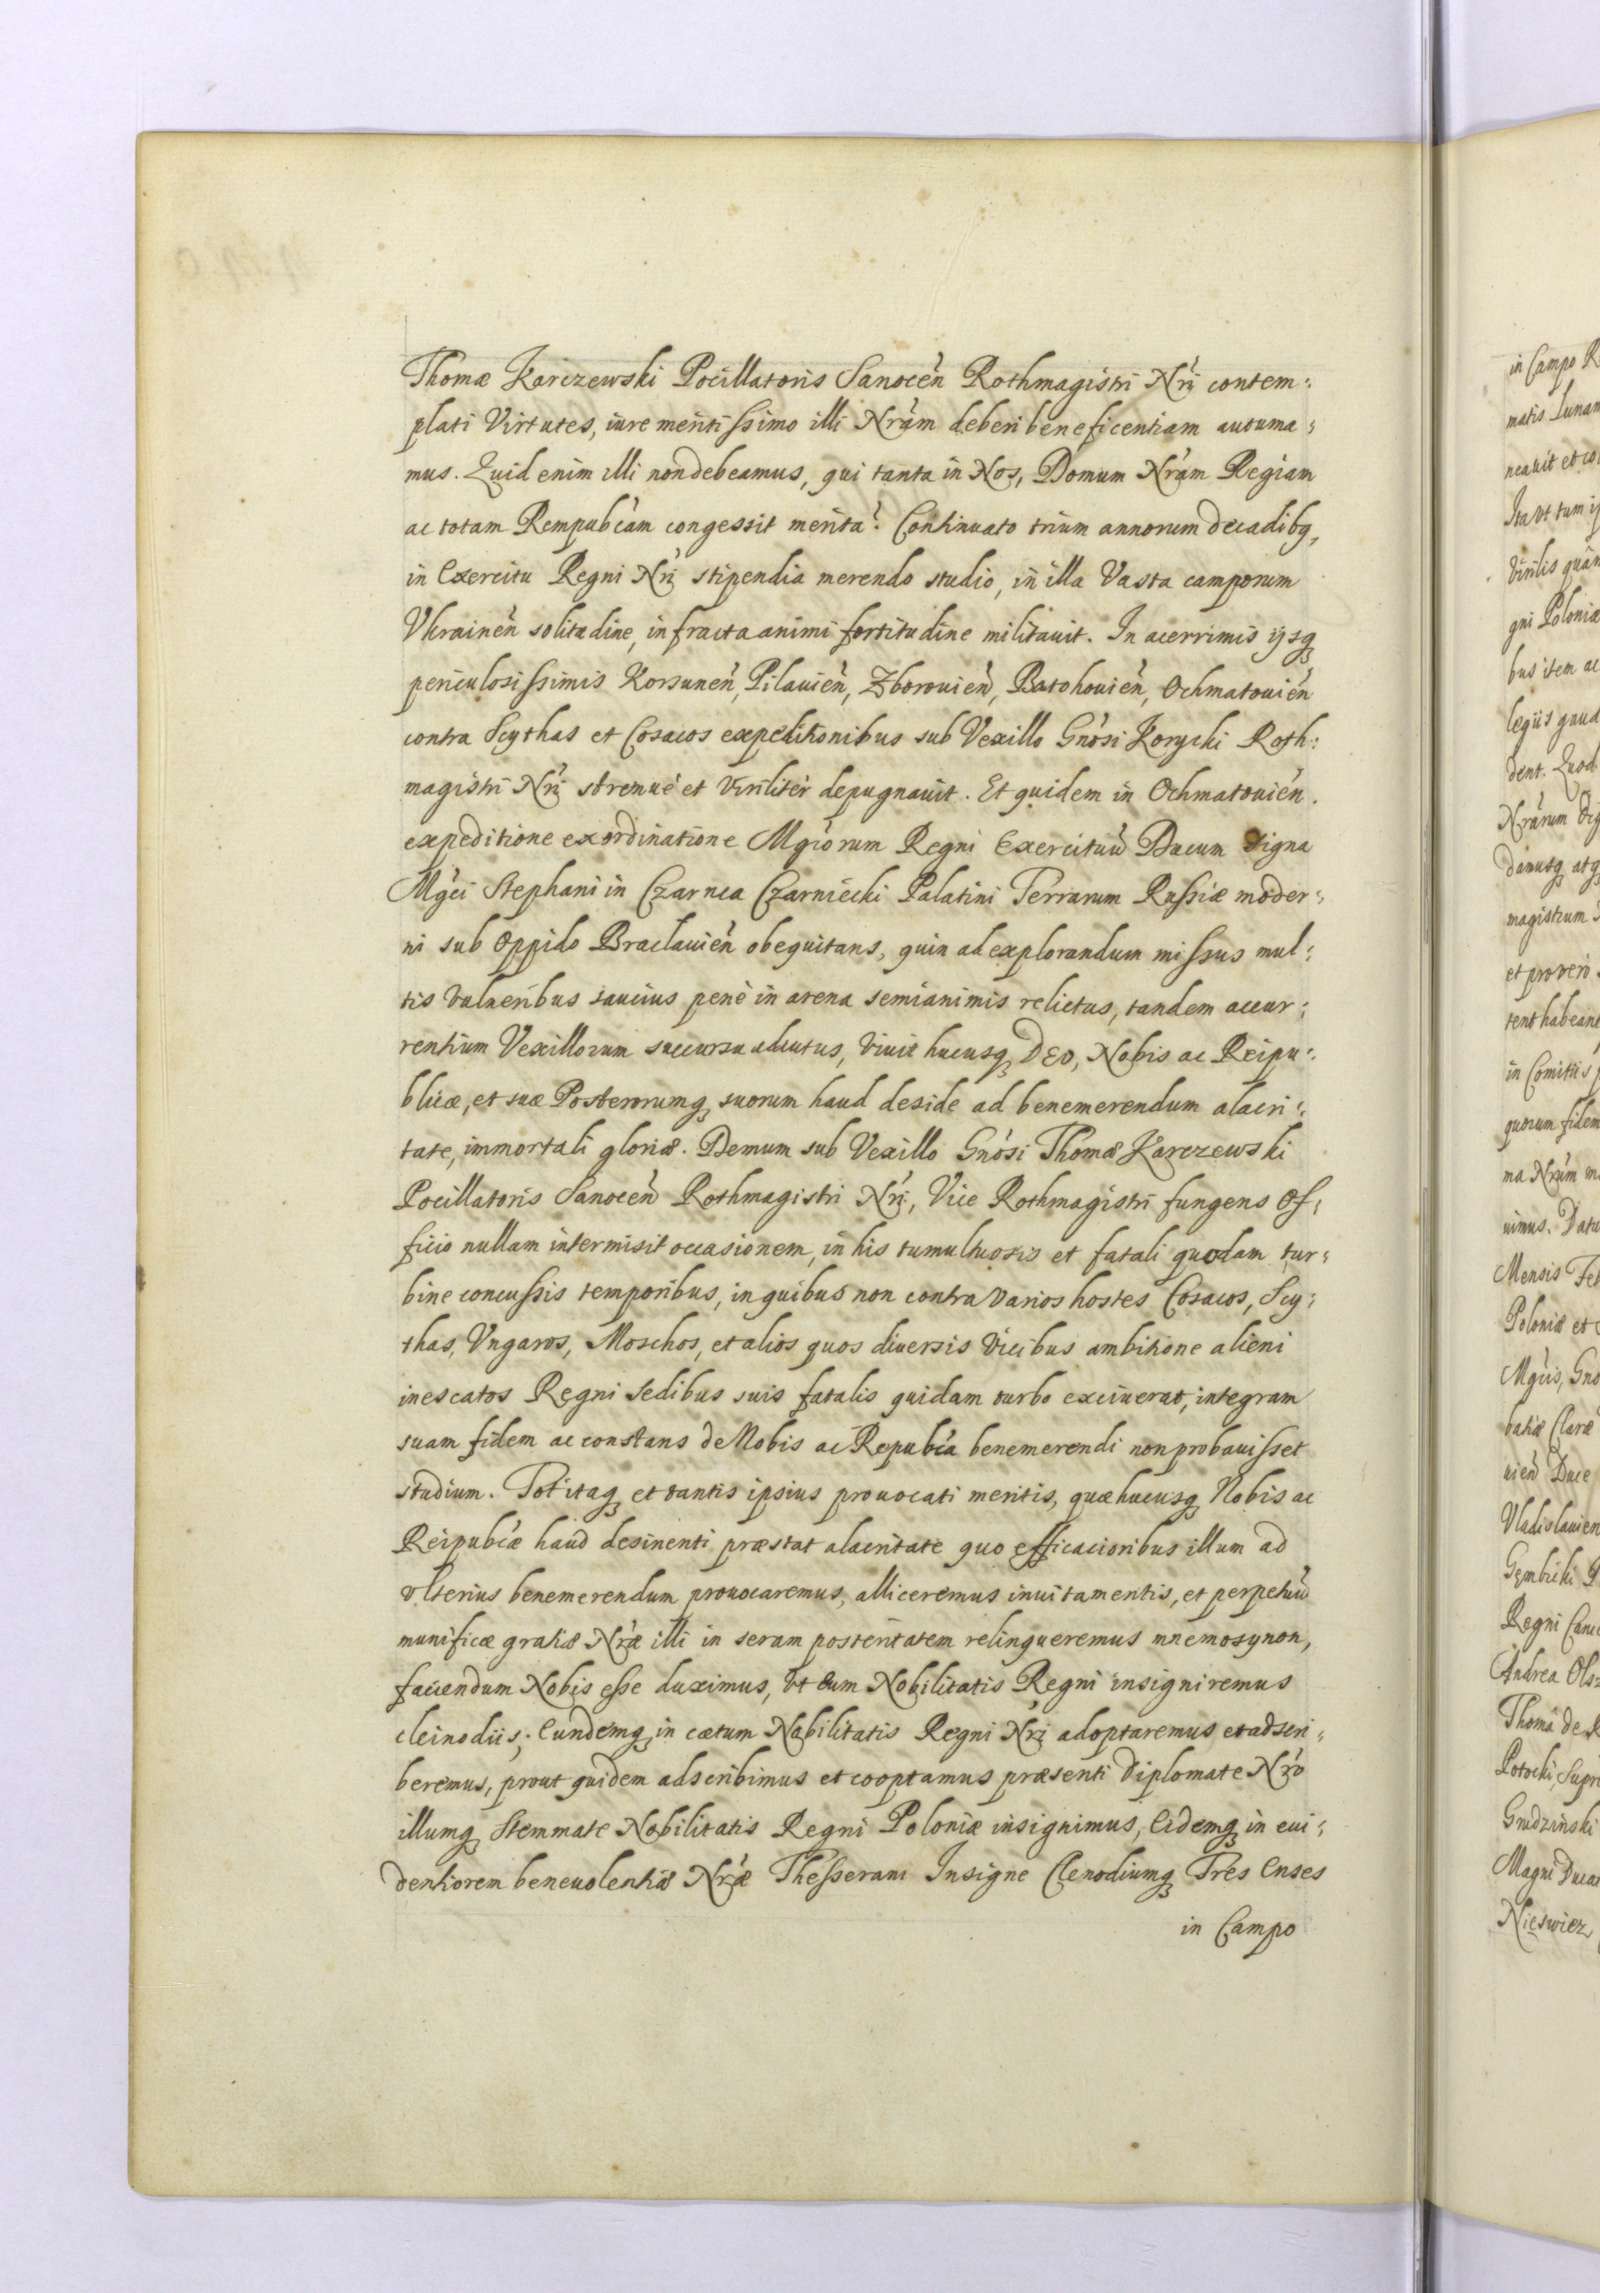 Thomæ Karczewski Pocillatoris Sanocen̄ Rothmagistri Nr̄i contem:
plati Virtutes, iure meritissimo illi Nrãm deberi beneficentiam autuma:
mus. Quid enim illi non debeamus, qui tanta in Nos, Domum Nrãm Regiam
ac totam Rempubc̃am congessit merita? Continuato trium annorum decadibq,
in Exercitu Regni Nr̃i stipendia merendo studio, in illa Vasta camporum
Vkrainen̄ solitudine, infracta animi fortitudine militauit. In acerrimis ijsq
periculosissimis Korsunen̄, Pilauien̄, Zborouien̄, Batohouien̄, Ochmatouien̄
contra Scythas et Cosacos expeditionibus sub Vexillo Gnõsi Korycki Roth:
magistri Nr̃i strenuè et Virilitèr depugnauit. Et quidem in Ochmatouien̄.
expeditione ex ordinatione Mgc̃orum Regni Exercituum̄ Ducum signa
Mgc̃i Stephani in Czarnca Czarniecki Palatini Terrarum Russiæ moder:
ni sub Oppido Braclauien̄ obequitans, quin ad explorandum missus mul:
tis Vulneribus saucius penè in arena semianimis relictus, tandem accur:
rentium Vexillorum succursu adiutus, viuit hucusq DEO, Nobis ac Reipu:
blicæ, et suæ Posterorumq suorum haud deside ad benemerendum alacri:
tate, immortali gloriæ. Demum sub Vexillo Gnõsi Thomæ Karczewski
Pocillatoris Sanocen̄ Rothmagistri Nr̃i, Vice Rothmagistri fungens Of:
ficio nullam intermisit occasionem, in his tumultuosis et fatali quodam tur:
bine concussis temporibus, in quibus non contra varios hostes Cosacos, Scy:
thas, Vngaros, Moschos, et alios quos diuersis Vicibus ambitione alieni
inescatos Regni sedibus suis fatalis quidam turbo exciuerat, integram
suam fidem ac constans de Nobis ac Repubc̃a benemerendi non probauisset
studium. Tot itaq et tantis ipsius prouocati meritis, quæ hucusq Nobis ac
Reipubc̃æ haud desinenti præstat alacritate quo efficacioribus illum ad
vlterius benemerendum prouocaremus, alliceremus inuitamentis, et perpetuum̄
munificæ gratiæ Nr̃æ illi in seram posteritatem relinqueremus mnemosynon,
faciendum Nobis esse duximus, Vt Eum Nobilitatis Regni insigniremus
cleinodiis; Eundemq in cætum Nobilitatis Regni Nr̃i adoptaremus et adscri:
beremus, prout quidem adscribimus et cooptamus præsenti Diplomate Nr̃o
illumq Stemmate Nobilitatis Regni Poloniæ insignimus, Eidemq in eui:
dentiorem beneuolentiæ Nr̃æ Thesseram Insigne Clenodiumq Tres Enses
in Campo
in Campo
matis Lunam
neauit et
Ita vt tum
Virilis quàm
gni Poloniæ
bus item ac
legiis gaud
dent. Quod
Nrãrum
damusq atq
magistrum
et pro vero
tent habeant
in Comitiis
quorum fidem
ma Nrãm
uimus. Datu
Mensis Feb
Poloniæ et
Mgc̃is, Gno
batiæ Claræ
uien̄ Duce
Vladislauien
Gembicki
Regni Canc
Andrea Olsz
Thoma de
Potocki, Supr
Grudzinski
Magni Ducat
Nieswiez